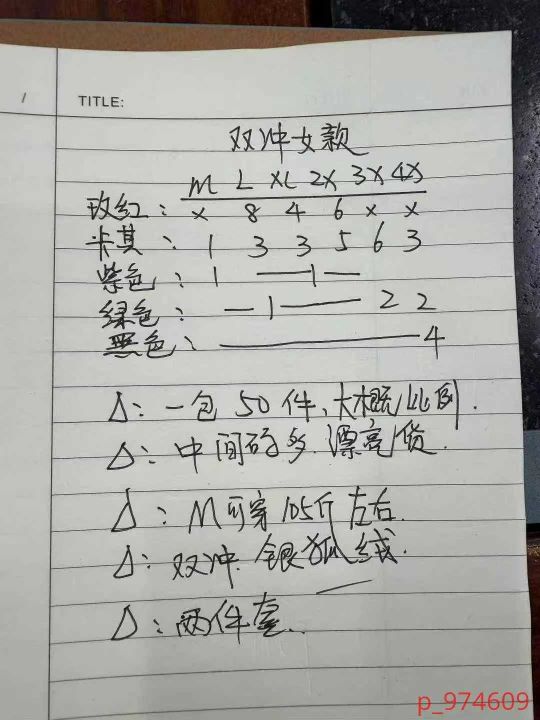 TITLE:
双冲女款
M L XL 2X 3X 4X
玫红: x 8 4 6 x x
卡其: 1 3 3 5 6 3
紫色: 1 — 1 —
绿色: — 1 — 2 2
黑色: — 4
△: 一包 50 件, 大概比例.
△: 中间码多. 漂亮货.
△: M可穿 105斤 左右.
△: 双冲. 银狐绒.
△: 两件套.
p_974609